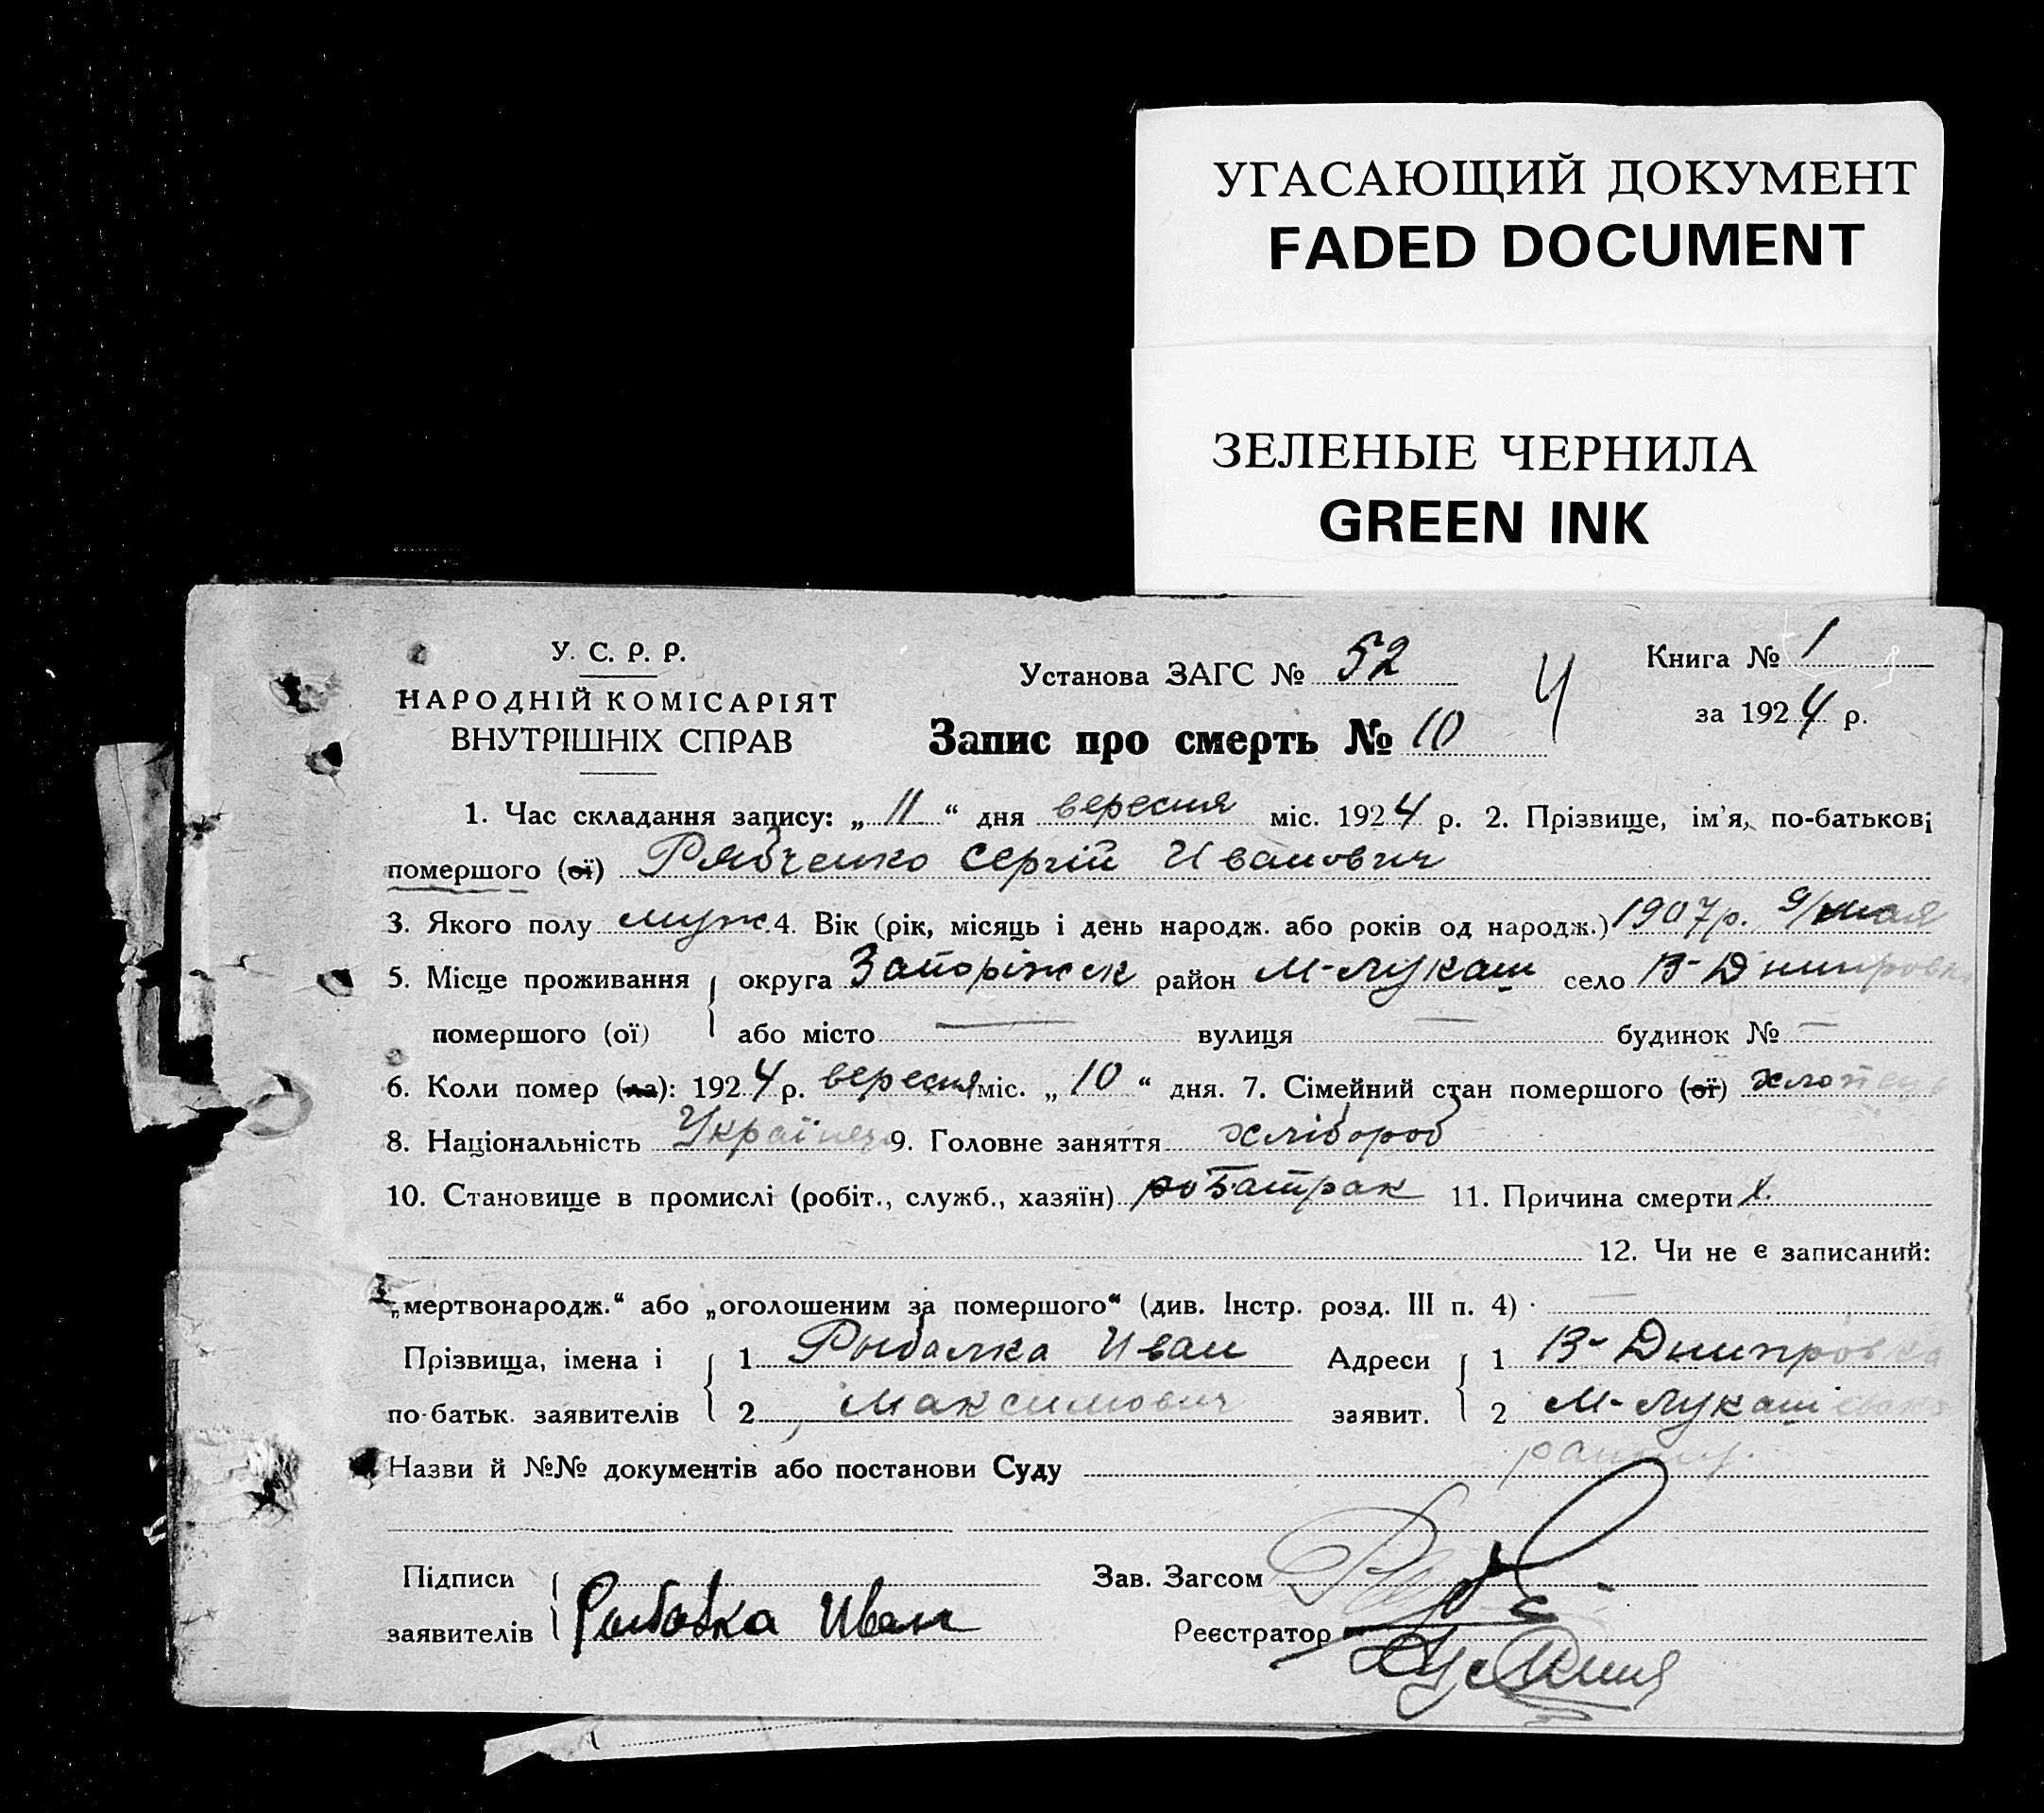 УГАСАЮЩИЙ ДОКУМЕНТ
FADED DOCUMENT
ЗЕЛЕНЫЕ ЧЕРНИЛА
GREEN INK
У. С. Р. Р.
НАРОДНІЙ КОМІСАРІЯТ
ВНУТРІШНІХ СПРАВ
Установа ЗАГС № 52
Запис про смерть № 10
4
Книга № 1
за 1924 р.
1. Час складання запису: „11“ дня вересня міс. 1924 р. 2. Прізвище, ім'я, по-батькові
помершого (ої) Рябченко Сергій Иванович
3. Якого полу муж. 4. Вік (рік, місяць і день народж. або років од народж.) 1907р. 9/мая
5. Місце проживання округа Запоріжск район М-Лукаш село В-Днипровка
помершого (ої) або місто — вулиця — будинок № —
6. Коли помер (ла): 1924 р. вересня міс. „10“ дня. 7. Сімейний стан помершого (ої) хлопець
8. Національність Українец 9. Головне заняття хлібороб
10. Становище в промислі (робіт., служб., хазяїн) Батрак 11. Причина смерти х.
12. Чи не є записаний:
„мертвонародж.“ або „оголошеним за помершого“ (див. Інстр. розд. III п. 4) · —
Прізвища, імена і 1 Рыбалка Иван Адреси 1 В-Днипровка
по-батьк. заявителів 2 Максимович заявит. 2 М-Лукаш
Назви й №№ документів або постанови Суду
Підписи
Зав. Загсом
заявителів Рыбалка Иван
Реєстратор